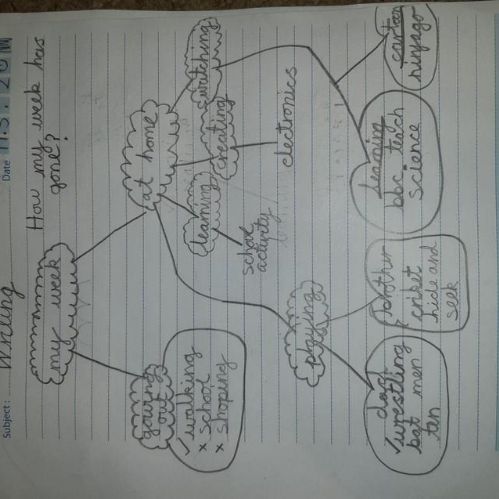 Subject: Writing
Date 11.5.20 M
How my week has
gone?
my week
going
out
✓walking
x school
x shoping
at home
learning
school
activity
creating
electronics
watching
learning
bbc teach
science
cartoon
ninjago
playing
brother
criket
hide and
seek
dad
✓wrestling
bat men
ten